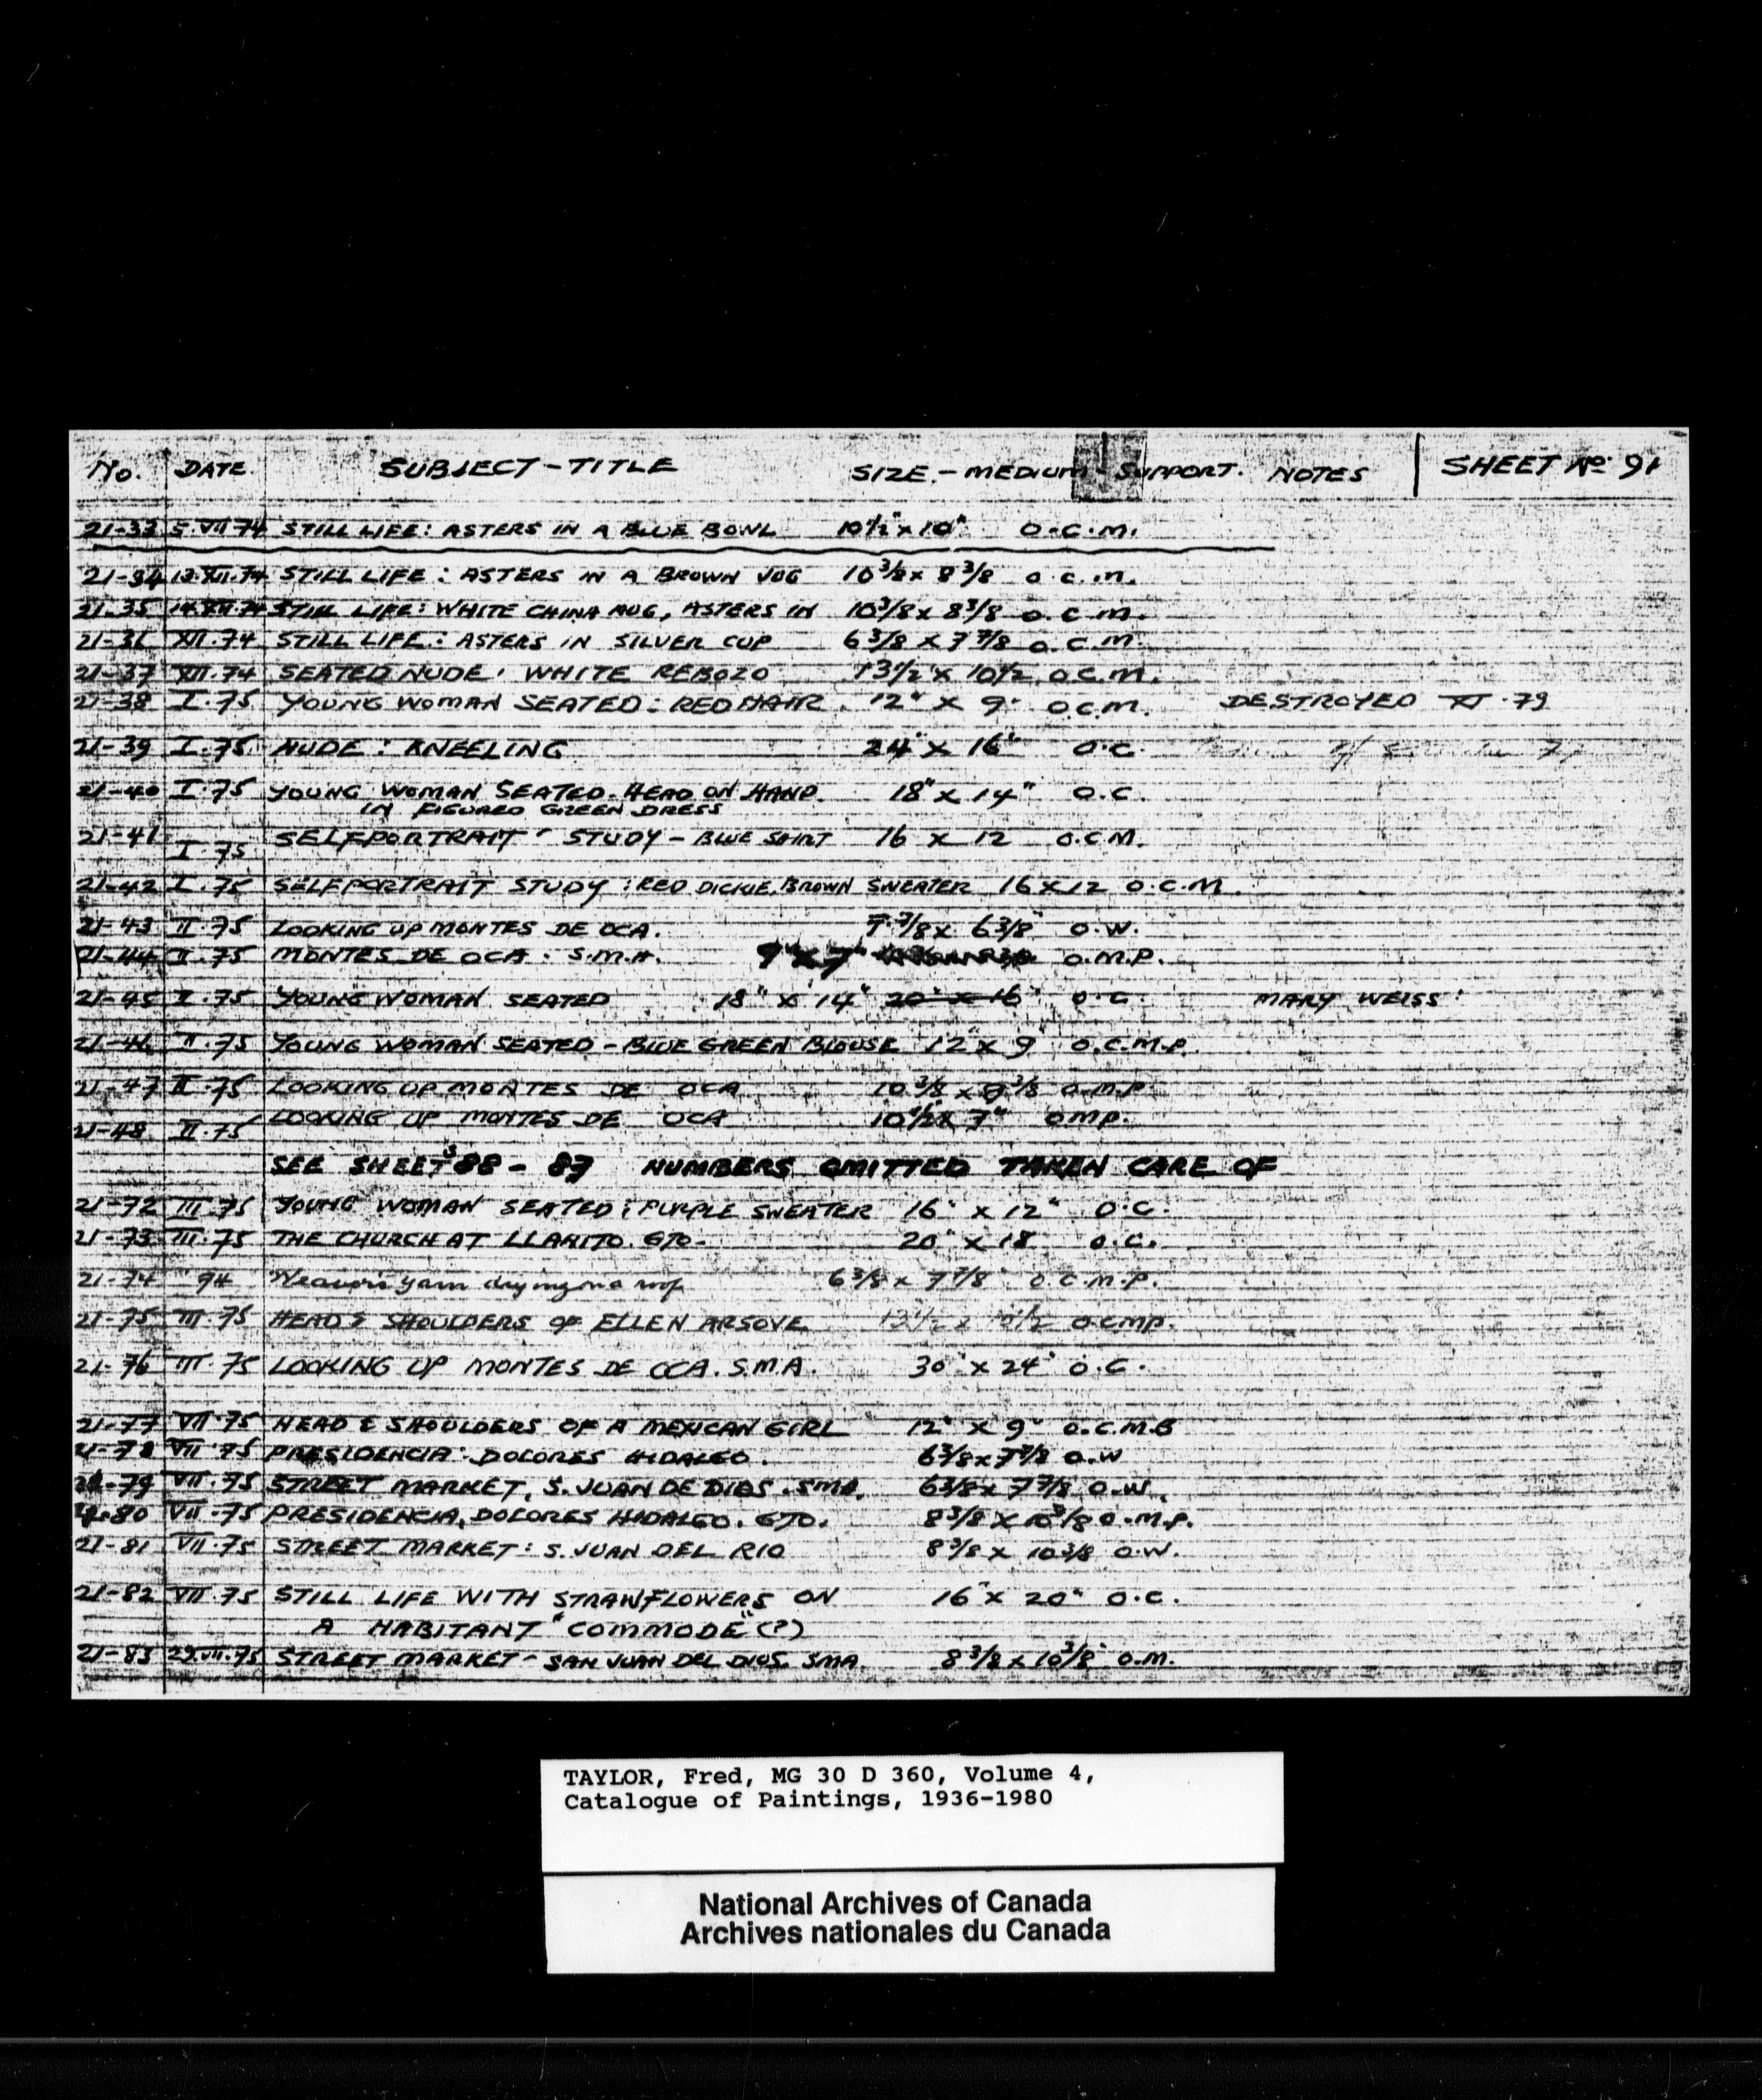 No. DATE. SUBJECT - TITLE SIZE. - MEDIUM - SUPPORT. NOTES SHEET No 91
21-33 5.VII 74 STILL LIFE: ASTERS IN A BLUE BOWL 10½" x 10" O.C.M.
21-34 13.XII.74 STILL LIFE: ASTERS IN A BROWN JUG 10 3/8 x 8 3/8 O.C.M.
21-35 14.XII.74 STILL LIFE: WHITE CHINA MUG, ASTERS IN 10 3/8 x 8 3/8 O.C.M.
21-36 XII.74 STILL LIFE: ASTERS IN SILVER CUP 6 3/8 x 7 7/8 O.C.M.
21-37 XII.74 SEATED NUDE: WHITE REBOZO 13½ x 10½ O.C.M.
21-38 I.75 YOUNG WOMAN SEATED: RED HAIR. 12" x 9" O.C.M. DESTROYED XI.79
21-39 I.75 NUDE: KNEELING 24" x 16" O.C.
21-40 I.75 YOUNG WOMAN SEATED. HEAD ON HAND. 18" x 14" O.C.
IN FIGURED GREEN DRESS
21-41 I.75 SELFPORTRAIT - STUDY - BLUE SHIRT 16 x 12 O.C.M.
21-42 I.75 SELFPORTRAIT STUDY: RED DICKIE, BROWN SWEATER 16 x 12 O.C.M.
21-43 II.75 LOOKING UP MONTES DE OCA. 7 7/8 x 6 3/8" O.W.
21-44 II.75 MONTES DE OCA. S.M.A. 9" x 7" O.M.P.
21-45 I.75 YOUNG WOMAN SEATED 18" x 14" 20" x 16" O.C. MARY WEISS
21-46 II.75 YOUNG WOMAN SEATED - BLUE GREEN BLOUSE 12" x 9" O.C.M.P.
21-47 II.75 LOOKING UP MONTES DE OCA 10 3/8 x 8 3/8 O.M.P.
21-48 II.75 LOOKING UP MONTES DE OCA 10½ x 7" OMP.
SEE SHEETS 88 - 89 NUMBERS OMITTED TAKEN CARE OF
21-72 III.75 YOUNG WOMAN SEATED: PURPLE SWEATER 16" x 12" O.C.
21-73 III.75 THE CHURCH AT LLANITO. GTO- 20" x 18 O.C.
21-74 " 94 Weaver's yarn drying on a roof 6 3/8 x 7 7/8 O.C.M.P.
21-75 III.75 HEAD & SHOULDERS OF ELLEN ARSOVE 13½ x 10½ O.C.M.P.
21-76 III.75 LOOKING UP MONTES DE OCA. S.M.A. 30" x 24" O.C.
21-77 VII.75 HEAD & SHOULDERS OF A MEXICAN GIRL 12" x 9" O.C.M.B
21-78 VII 75 PRESIDENCIA: DOLORES HIDALGO. 6 3/8 x 7 7/8 O.W
21-79 VII.75 STREET MARKET, S. JUAN DE DIOS. SMA. 6 3/8 x 7 7/8 O.W.
21-80 VII.75 PRESIDENCIA, DOLORES HIDALGO. GTO. 8 3/8 x 10 3/8 O.M.P.
21-81 VII.75 STREET MARKET: S. JUAN DEL RIO 8 3/8 x 10 3/8 O.W.
21-82 VII.75 STILL LIFE WITH STRAWFLOWERS ON 16" x 20" O.C.
A HABITANT "COMMODE" (?)
21-83 29.VII.75 STREET MARKET - SAN JUAN DEL DIOS. SMA 8 3/8 x 10 3/8" O.M.
TAYLOR, Fred, MG 30 D 360, Volume 4,
Catalogue of Paintings, 1936-1980
National Archives of Canada
Archives nationales du Canada